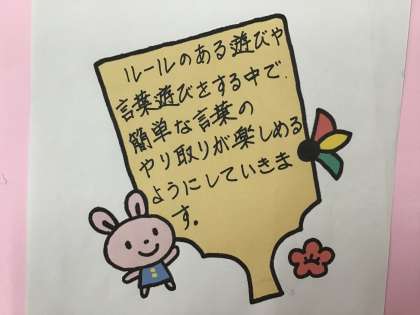 ルールのある遊びや
言葉遊びをする中で、
簡単な言葉の
やり取りが楽しめる
ようにしていきま
す。